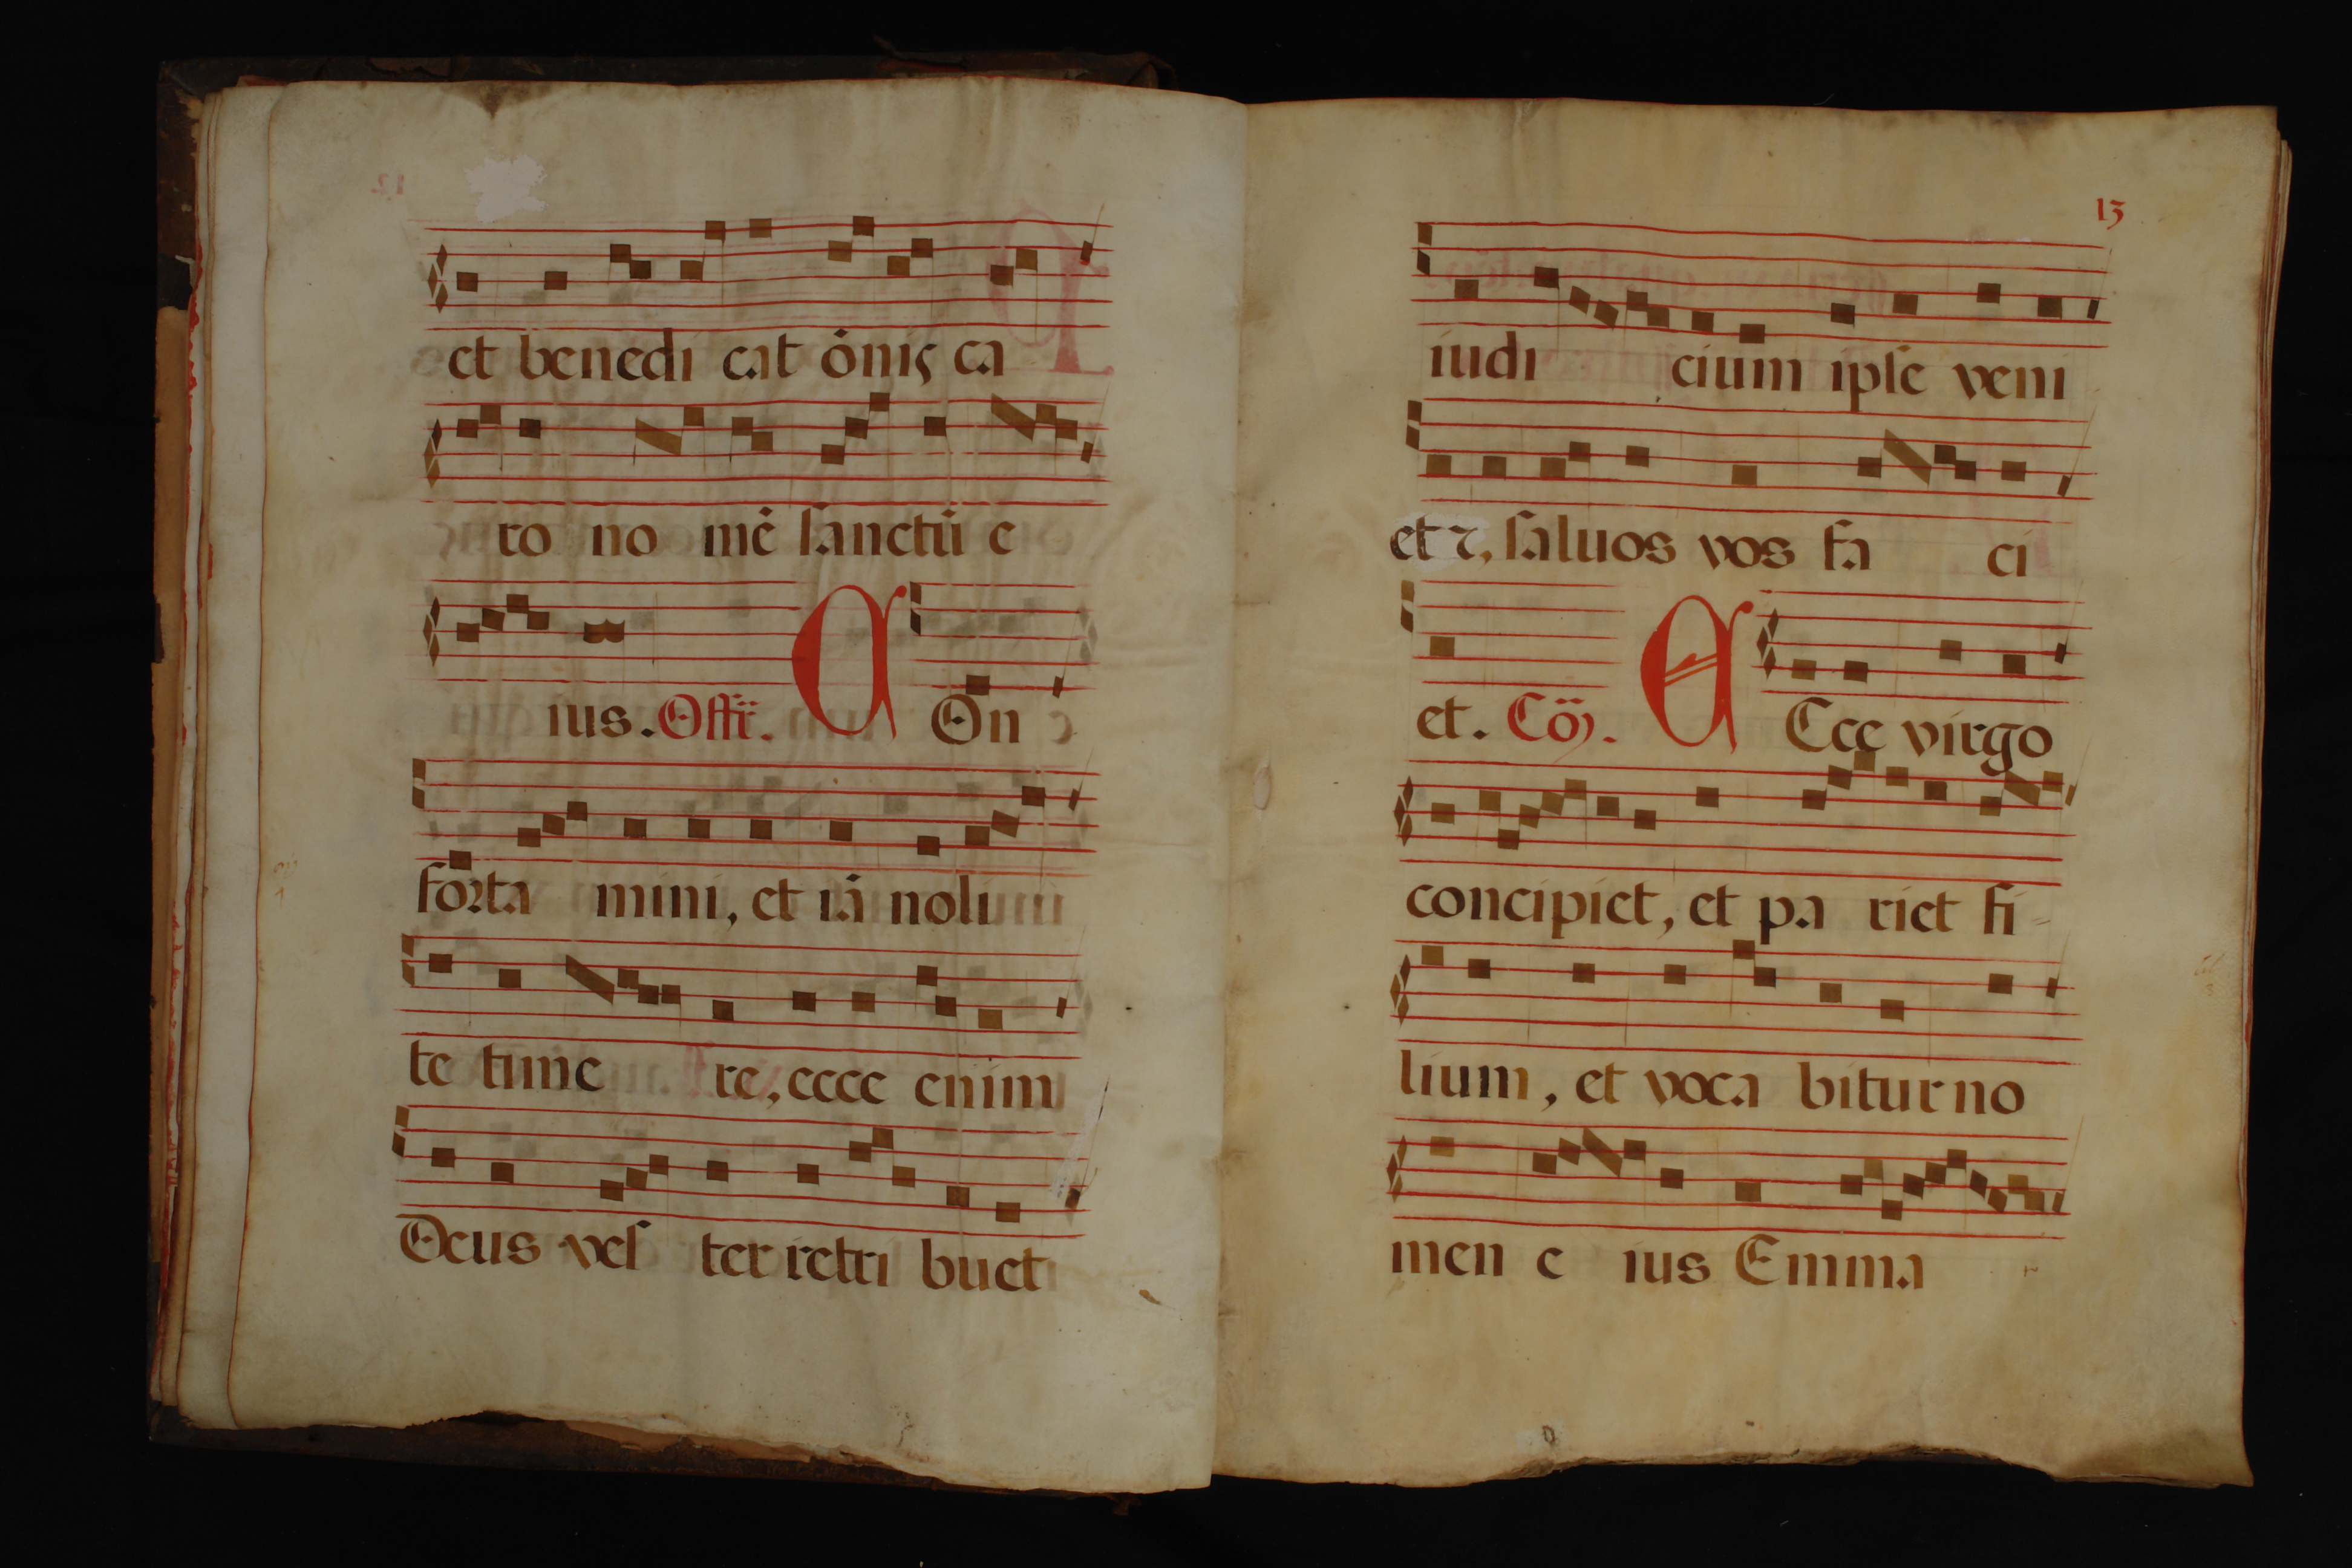 et benedi cat ōnis ca
ro no mē sanctū e
ius. Offr̄. COn
forta mini, et iā noli
te time re, ecce enim
Deus ves ter retri buet
13
iudi cium ipse veni
et ⁊, saluos vos fa ci
et. Cō. ECce virgo
concipiet, et pa riet fi-
lium, et voca bitur no
men e ius Emma